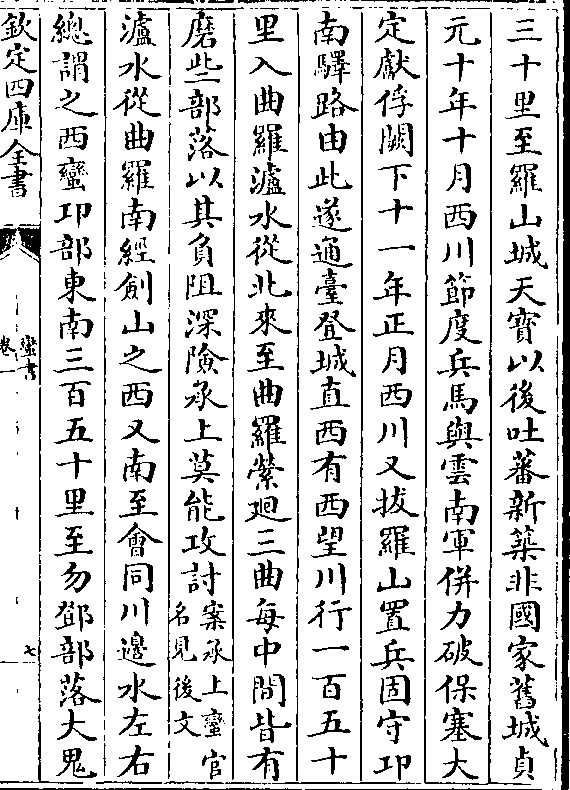 三十里至羅山城天寶以後吐蕃新築非國家舊城貞
元十年十月西川節度兵馬與雲南軍併力破保塞大
定獻俘闕下十一年正月西川又拔羅山置兵固守卭
南驛路由此遂通臺登城直西有西望川行一百五十
里入曲羅瀘水從北來至曲羅縈迴三曲每中間皆有
磨些部落以其負阻深險承上莫能攻討案承上蠻官名見後文
瀘水從曲羅南經劍山之西又南至會同川邊水左右
總謂之西蠻卭部東南三百五十里至勿鄧部落大鬼
欽定四庫全書
蠻書
卷一
七